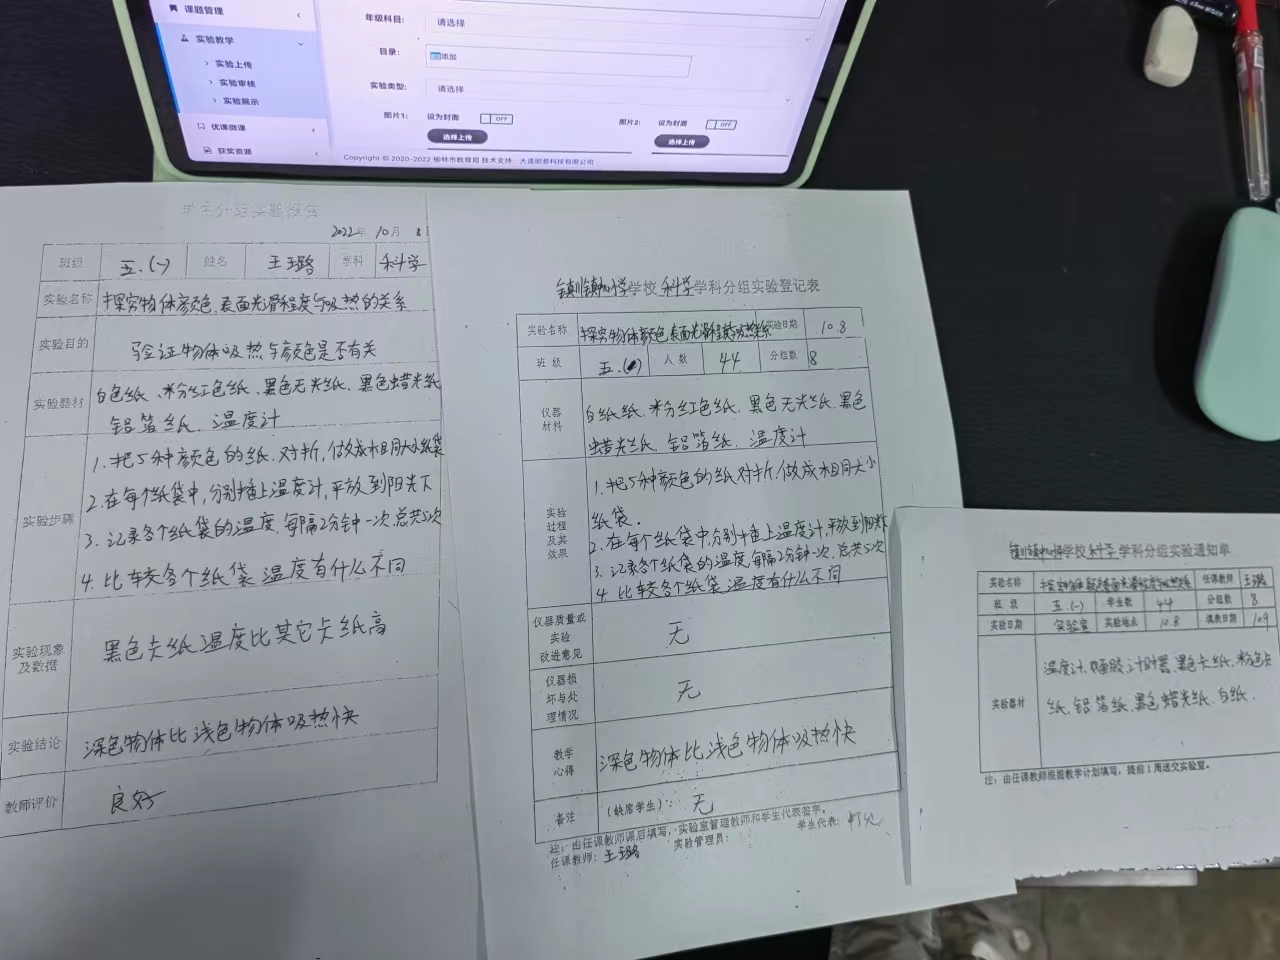 课题管理
实验教学
实验上传
实验审核
实验展示
优课微课
获奖资源
年级科目: 请选择
目录: 添加
实验类型: 请选择
图片1: 设为封面 OFF
选择上传
图片2: 设为封面 OFF
选择上传
Copyright © 2020-2022 榆林市教育局 技术支持：大连明易科技有限公司
学生分组实验报告
2022年 10月 8
班级 五.(一) 姓名 王璐 学科 科学
实验名称 探究物体颜色、表面光滑程度与吸热的关系
实验目的 验证物体吸热与颜色是否有关
实验器材 白色纸、粉红色纸、黑色无光纸、黑色蜡光纸
铝箔纸、温度计
实验步骤
1.把5种颜色的纸.对折,做成相同大小纸袋
2.在每个纸袋中,分别插上温度计,平放到阳光下
3.记录各个纸袋的温度.每隔2分钟一次.总共5次
4.比较各个纸袋温度有什么不同
实验现象及数据 黑色卡纸温度比其它卡纸高
实验结论 深色物体比浅色物体吸热快
教师评价 良好
学校科学学科分组实验登记表
实验名称 探究物体颜色表面光滑程度与吸热关系 实验日期 10.8
班级 五.(一) 人数 44 分组数 8
仪器材料 白纸纸、粉红色纸.黑色无光纸.黑色
蜡光纸、铝箔纸、温度计
实验过程及其效果
1.把5种颜色的纸对折.做成相同大小
纸袋.
2.在每个纸袋中,分别插上温度计,平放到阳光下
3.记录各个纸袋的温度.每隔2分钟一次.总共5次
4.比较各个纸袋温度有什么不同
仪器质量或实验改进意见 无
仪器损坏与处理情况 无
教学心得 深色物体比浅色物体吸热快
备注 (缺席学生): 无
注：由任课教师课后填写，实验室管理教师和学生代表签字。
任课教师: 王璐 实验管理员: 学生代表:
学校科学学科分组实验通知单
实验名称 探究物体颜色表面光滑程度与吸热关系 任课教师 王璐
班级 五.(一) 学生数 44 分组数 8
实验日期 实验室 实验地点 10.8 填表日期 10.9
实验器材 温度计.双面胶.计时器.黑色卡纸.粉色卡
纸.铝箔纸.黑色蜡光纸.白纸.
注：由任课教师根据教学计划填写，提前1周送交实验室。